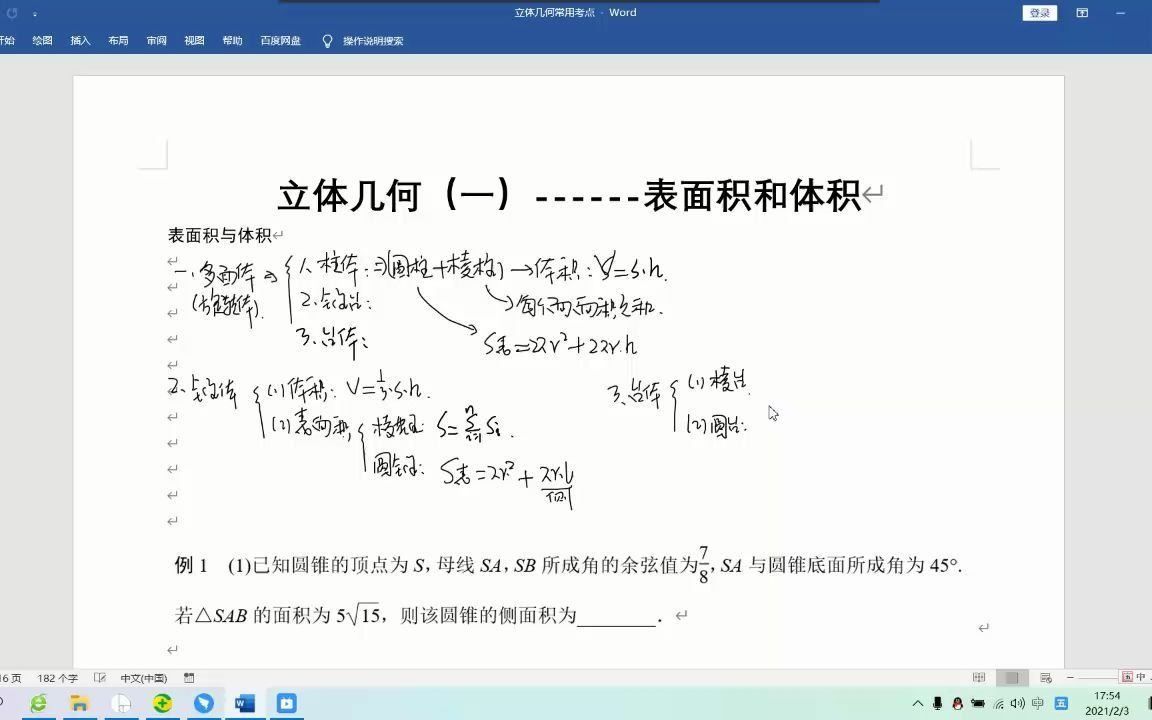 立体几何常用考点 - Word
登录
开始 绘图 插入 布局 审阅 视图 帮助 百度网盘 操作说明搜索
立体几何（一）------表面积和体积
表面积与体积
一.多面体 1.柱体：⇒(圆柱+棱柱)→体积：V=S·h.
2.锥体：
3.台体：
S表=2πr²+2πr·h
2.锥体 (1)体积：V=1/3·S·h.
(2)表面积 棱锥：S=Σ Si.
圆锥：S表=πr²+πr·l
3.台体 (1)棱台
(2)圆台：
例 1 (1)已知圆锥的顶点为 S，母线 SA，SB 所成角的余弦值为7/8，SA 与圆锥底面所成角为 45°.
若△SAB 的面积为 5√15，则该圆锥的侧面积为________．
16 页 182 个字 中文(中国)
中
17:54
2021/2/3